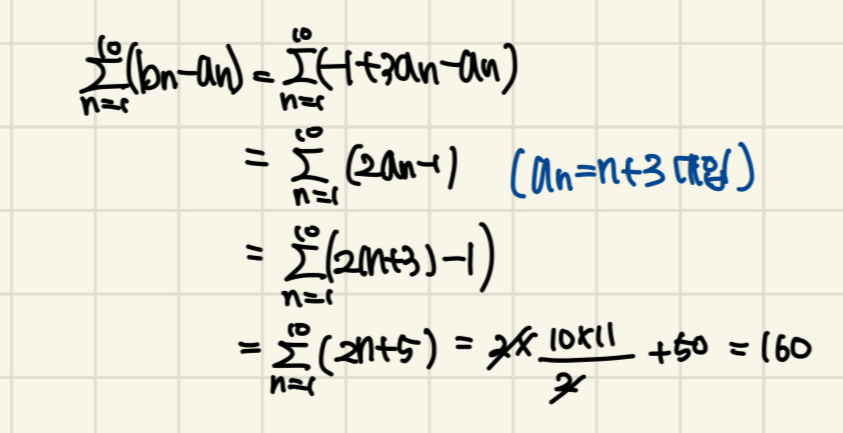 \sum_{n=1}^{10}(b_n-a_n) = \sum_{n=1}^{10}(-1+3a_n-a_n)
= \sum_{n=1}^{10}(2a_n-1) (a_n=n+3 대입)
= \sum_{n=1}^{10}(2(n+3)-1)
= \sum_{n=1}^{10}(2n+5) = 2×\frac{10×11}{2}+50 = 160